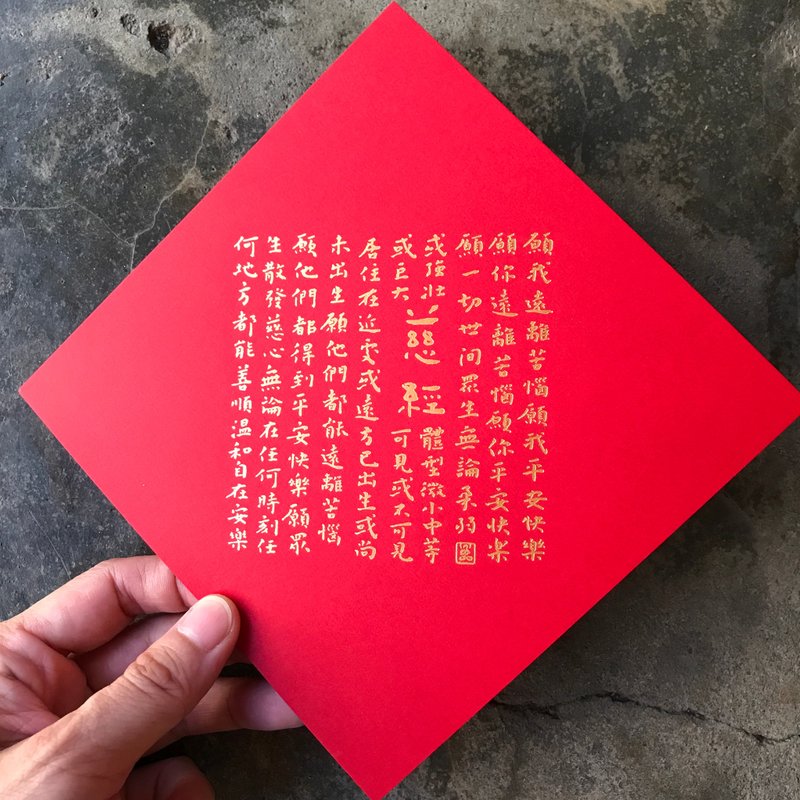 願我遠離苦惱願我平安快樂
願你遠離苦惱願你平安快楽
願一切世间眾生無論柔弱
或強壯
體型微小中等
或巨大
可見或不可見
慈經
居住在近處或遠方已出生或尚
未出生願他們都能遠離苦惱
願他們都得到平安快樂願眾
生散發慈心無論在任何時刻任
何地方都能善順溫和自在安樂